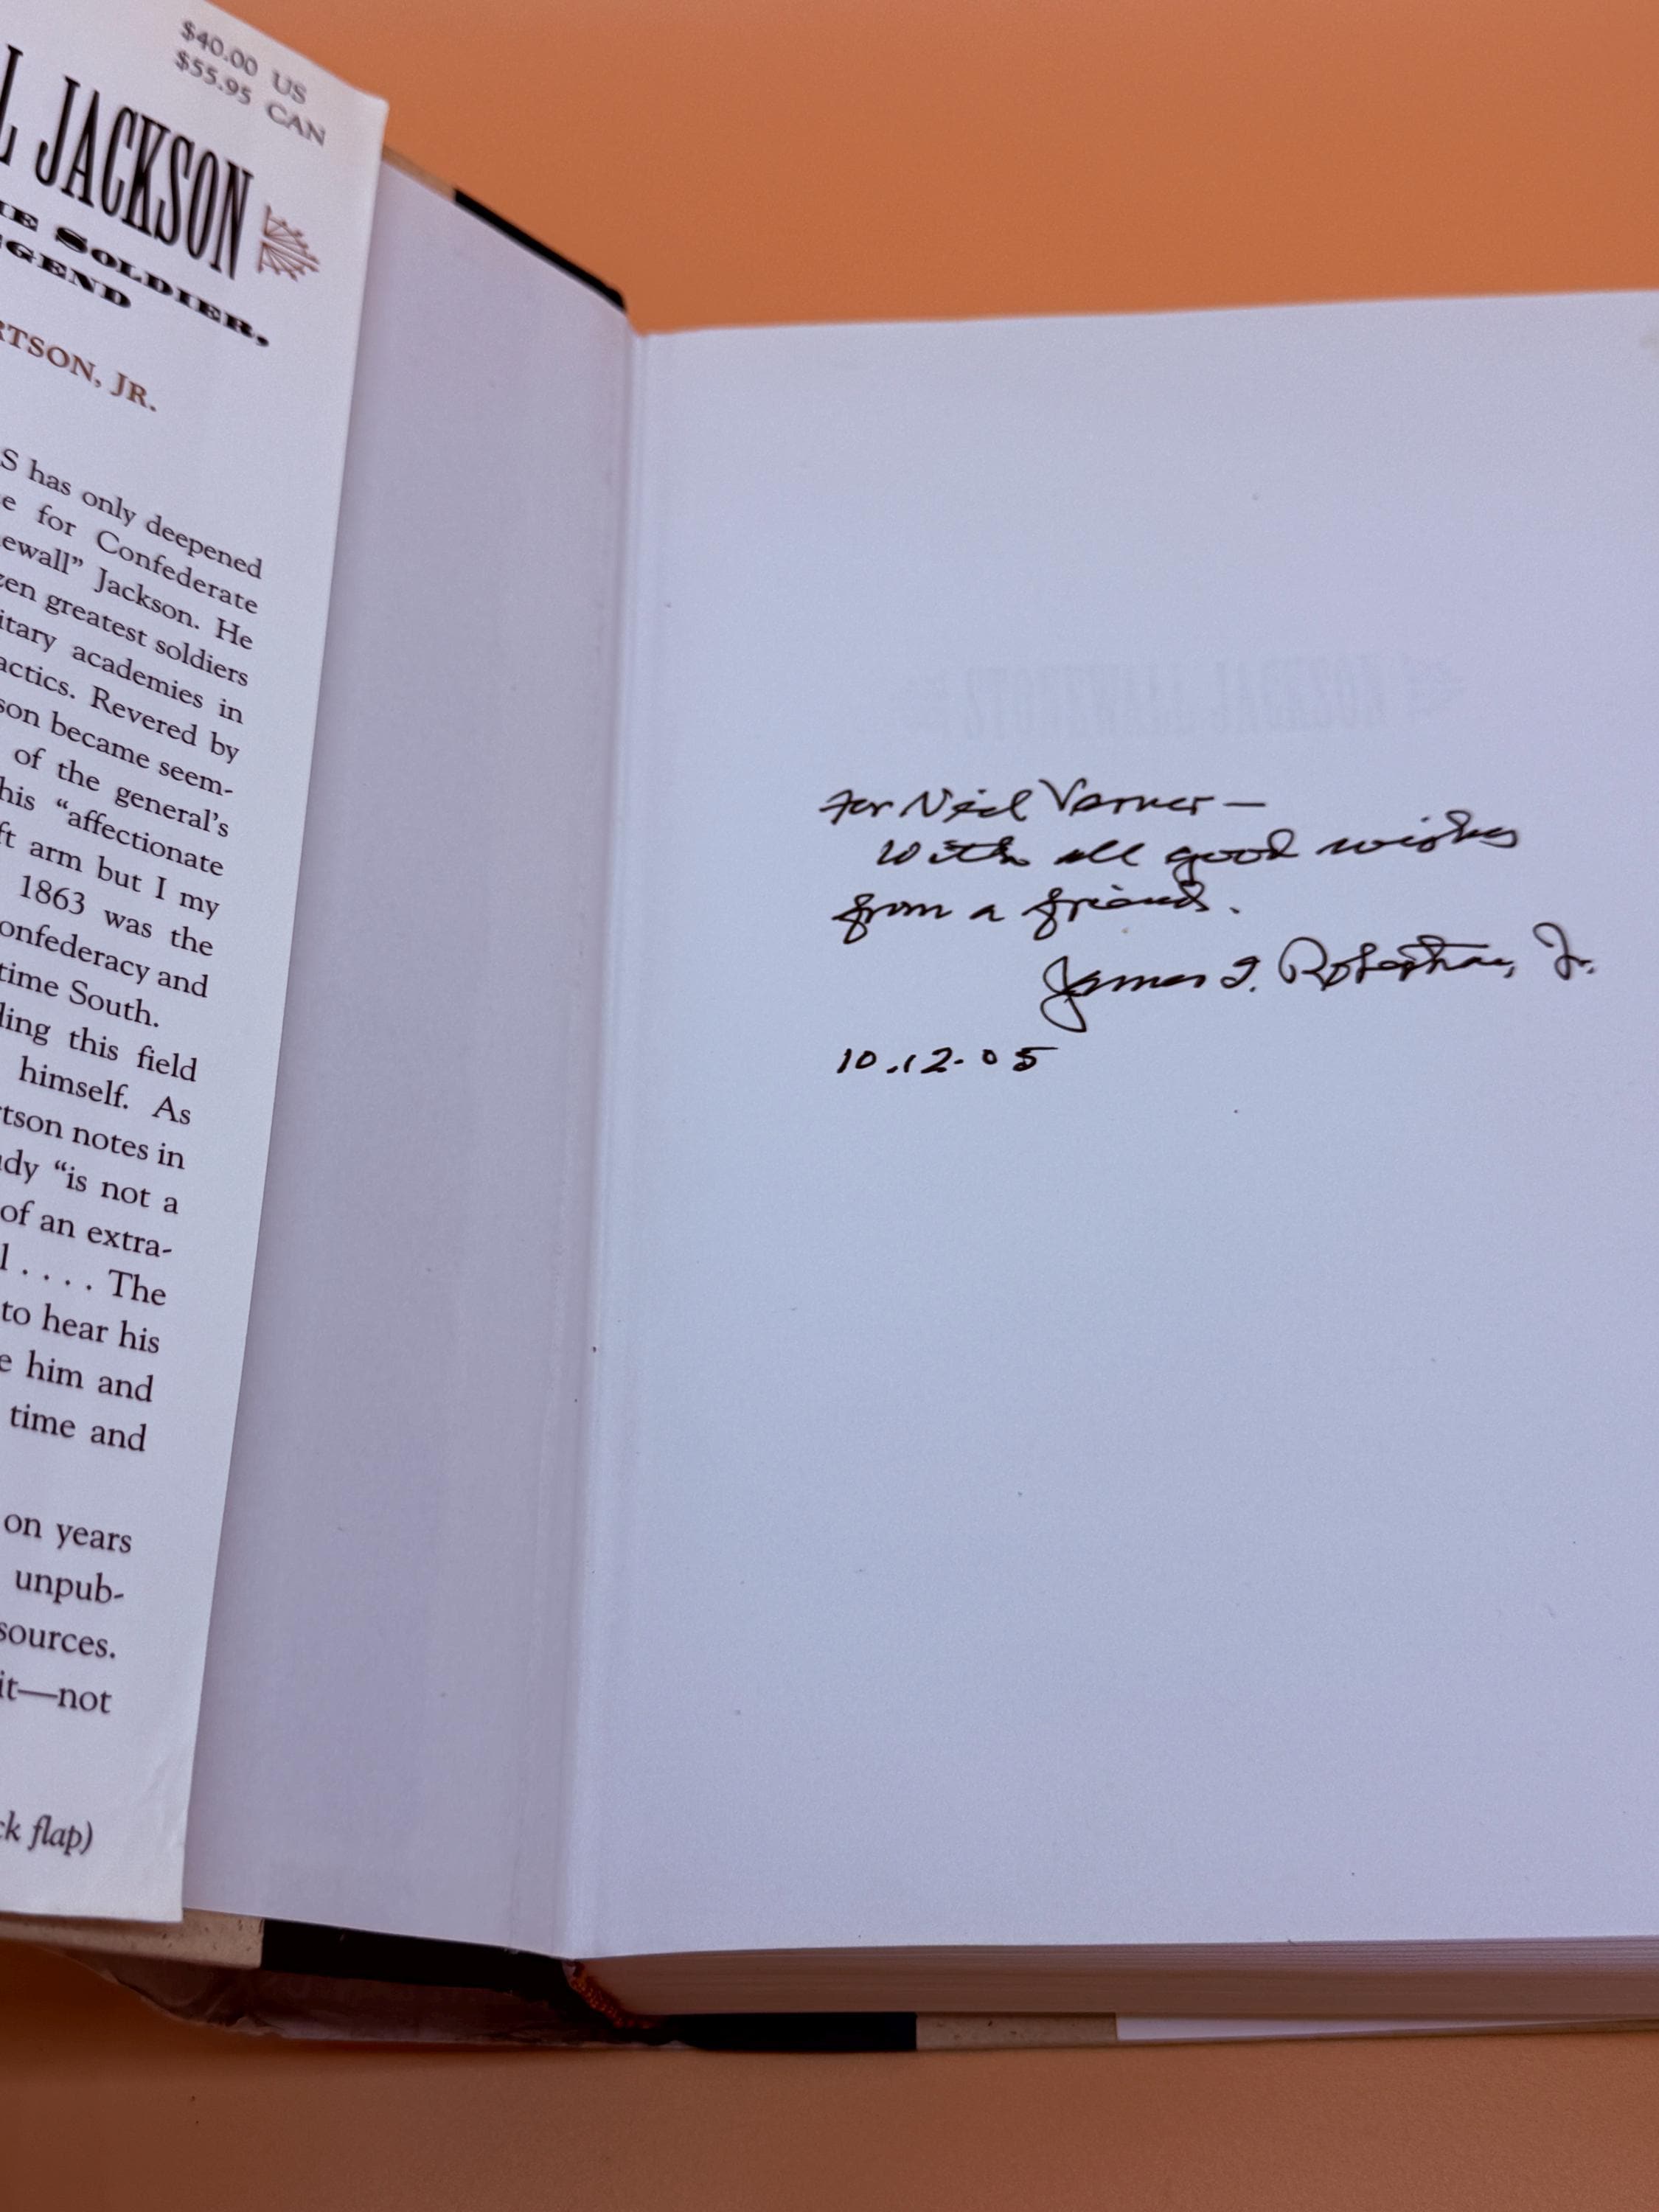 $40.00 US
$55.95 CAN
L JACKSON
HE SOLDIER,
GEND
RTSON, JR.
S has only deepened
e for Confederate
ewall” Jackson. He
zen greatest soldiers
itary academies in
actics. Revered by
son became seem-
of the general’s
his “affectionate
ft arm but I my
1863 was the
onfederacy and
time South.
ding this field
himself. As
rtson notes in
udy “is not a
of an extra-
l . . . . The
to hear his
e him and
time and
on years
unpub-
sources.
it—not
ck flap)
STONEWALL JACKSON
For Neil Varner —
With all good wishes
from a friend.
James I. Robertson, Jr.
10.12.05